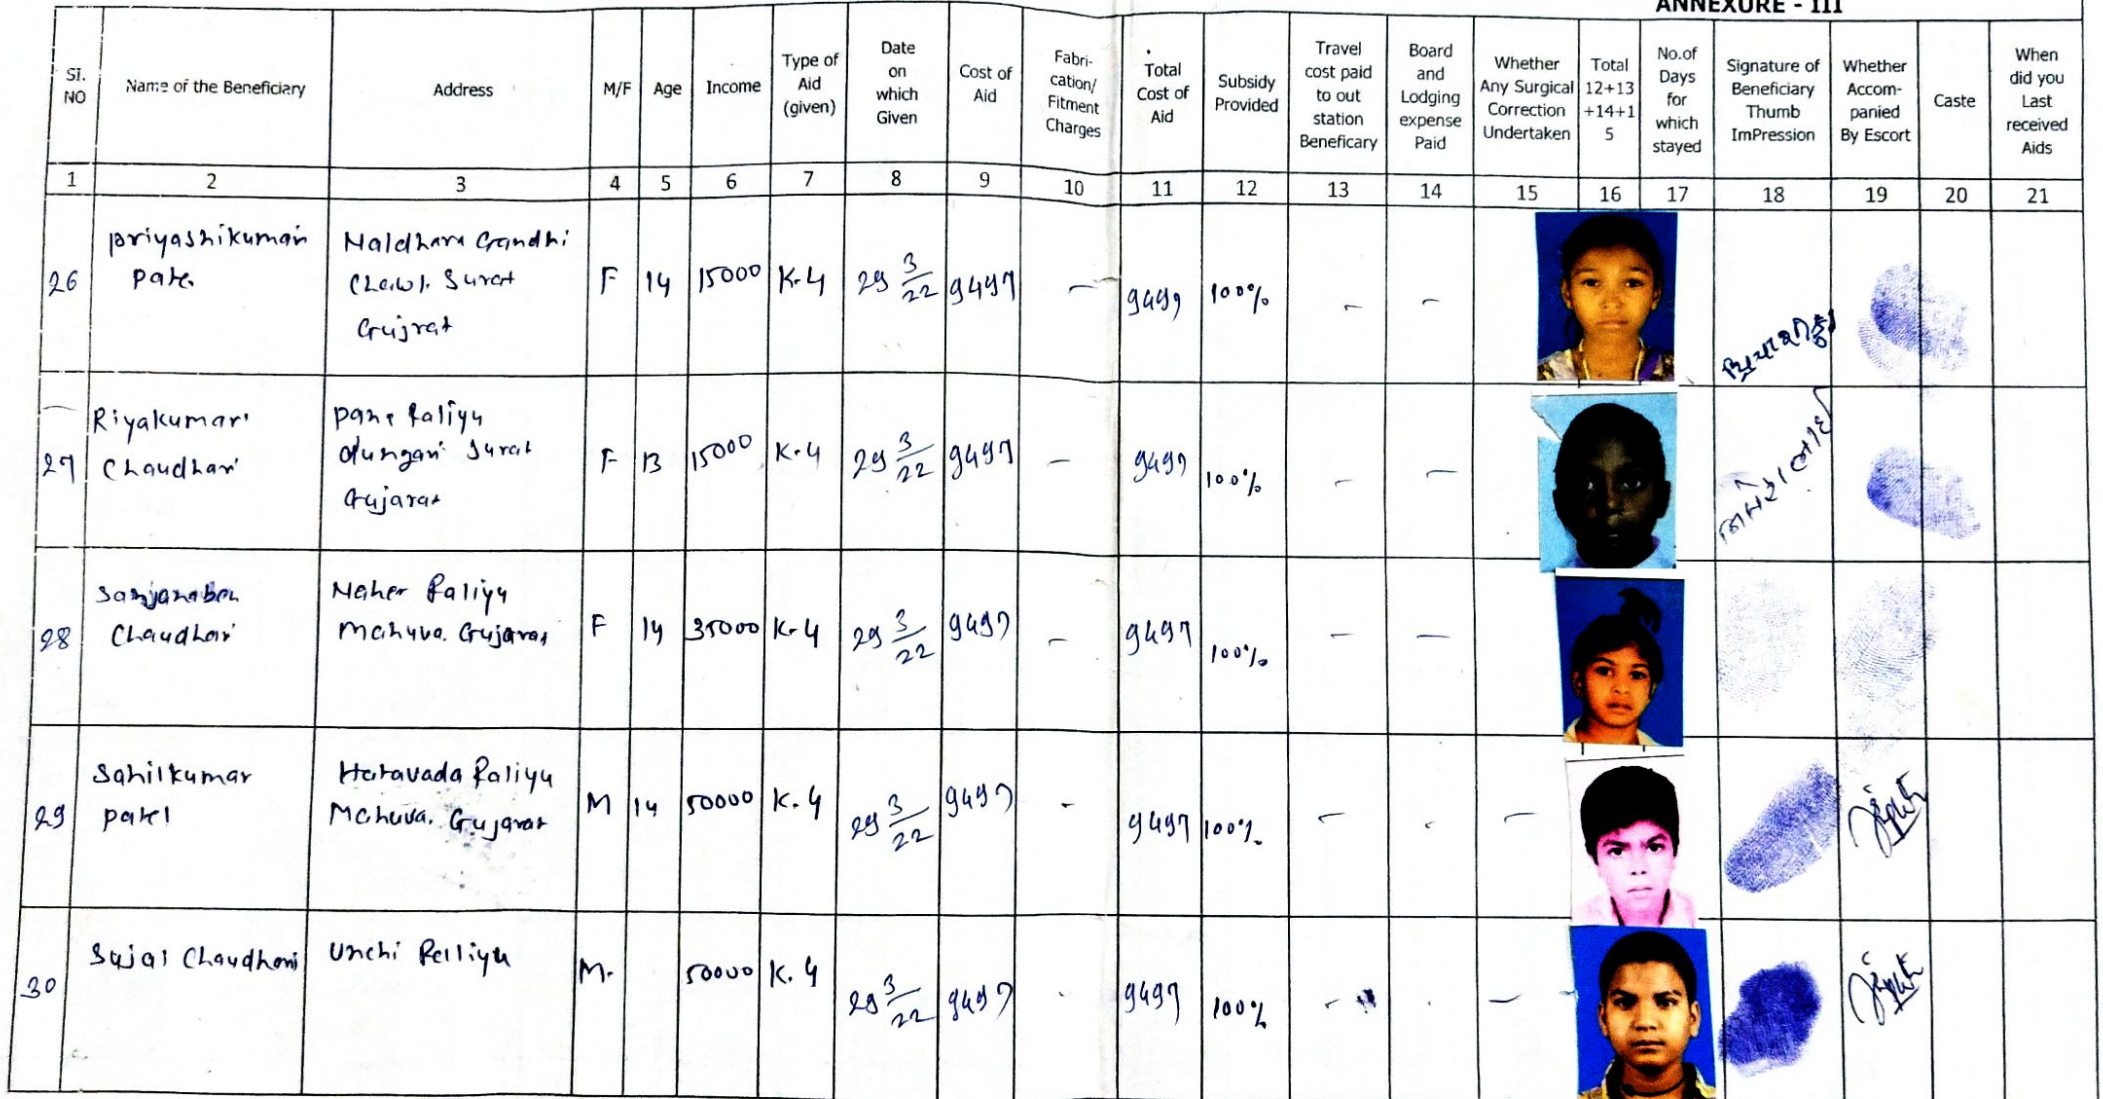 ANNEXURE - III
Sl. NO
Name of the Beneficiary
Address
M/F
Age
Income
Type of Aid (given)
Date on which Given
Cost of Aid
Fabri-cation/ Fitment Charges
Total Cost of Aid
Subsidy Provided
Travel cost paid to out station Beneficary
Board and Lodging expense Paid
Whether Any Surgical Correction Undertaken
Total 12+13 +14+1 5
No.of Days for which stayed
Signature of Beneficiary Thumb ImPression
Whether Accom-panied By Escort
Caste
When did you Last received Aids
1 2 3 4 5 6 7 8 9 10 11 12 13 14 15 16 17 18 19 20 21
26
priyashikumari
Patel
Naldhara Gandhi
Surat
Gujrat
F 14 15000 K-4 29 3/22 9497 - 9497 100% - -
27
Riyakumari
Chaudhari
faliyu
dungari Surat
Gujarat
F 13 15000 K-4 29 3/22 9497 - 9497 100% - -
28
Sanjanaben
Chaudhari
Naher faliyu
Mahuva. Gujarat
F 14 35000 K-4 29 3/22 9497 - 9497 100% - -
29
Sahilkumar
patel
Hatavada faliyu
Mahuva. Gujarat
M 14 50000 K.4 29 3/22 9497 - 9497 100% - - -
30
Sujal Chaudhari
Unchi
M. 50000 K.4 29 3/22 9497 - 9497 100% - - -